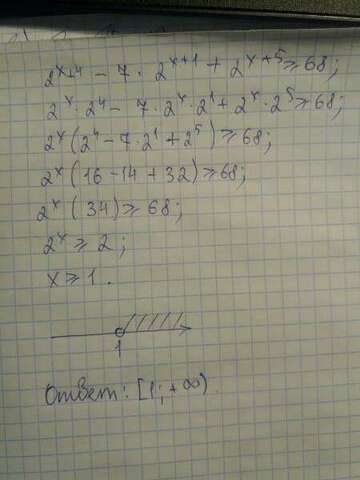 2^{x+4} - 7 · 2^{x+1} + 2^{x+5} ≥ 68;
2^x · 2^4 - 7 · 2^x · 2^1 + 2^x · 2^5 ≥ 68;
2^x (2^4 - 7 · 2^1 + 2^5) ≥ 68;
2^x (16 - 14 + 32) ≥ 68;
2^x (34) ≥ 68;
2^x ≥ 2;
x ≥ 1.
1
Ответ: [1; +∞)